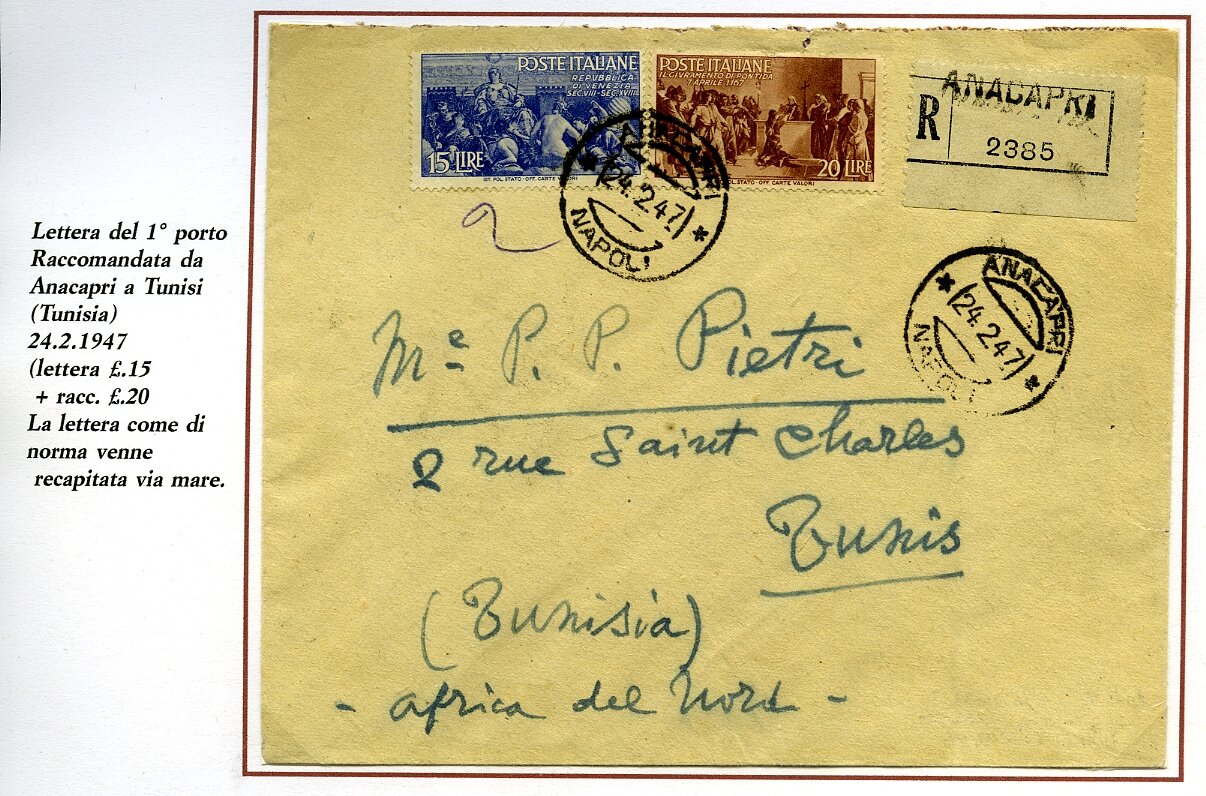 Lettera del 1° porto
Raccomandata da
Anacapri a Tunisi
(Tunisia)
24.2.1947
(lettera £.15
+ racc. £.20
La lettera come di
norma venne
recapitata via mare.
POSTE ITALIANE
REPUBBLICA
DI VENEZIA
SEC.VIII-SEC.XVIII
15 LIRE
IST. POL. STATO - OFF. CARTE VALORI
POSTE ITALIANE
IL GIVRAMENTO DI PONTIDA
7 APRILE 1167
20 LIRE
POL. STATO - OFF. CARTE VALORI
ANACAPRI
24.2.47
NAPOLI
R
ANACAPRI
2385
ANACAPRI
24.2.47
NAPOLI
Mᵉ P. P. Pietri
2 rue Saint Charles
Tunis
(Tunisia)
- Africa del Nord -